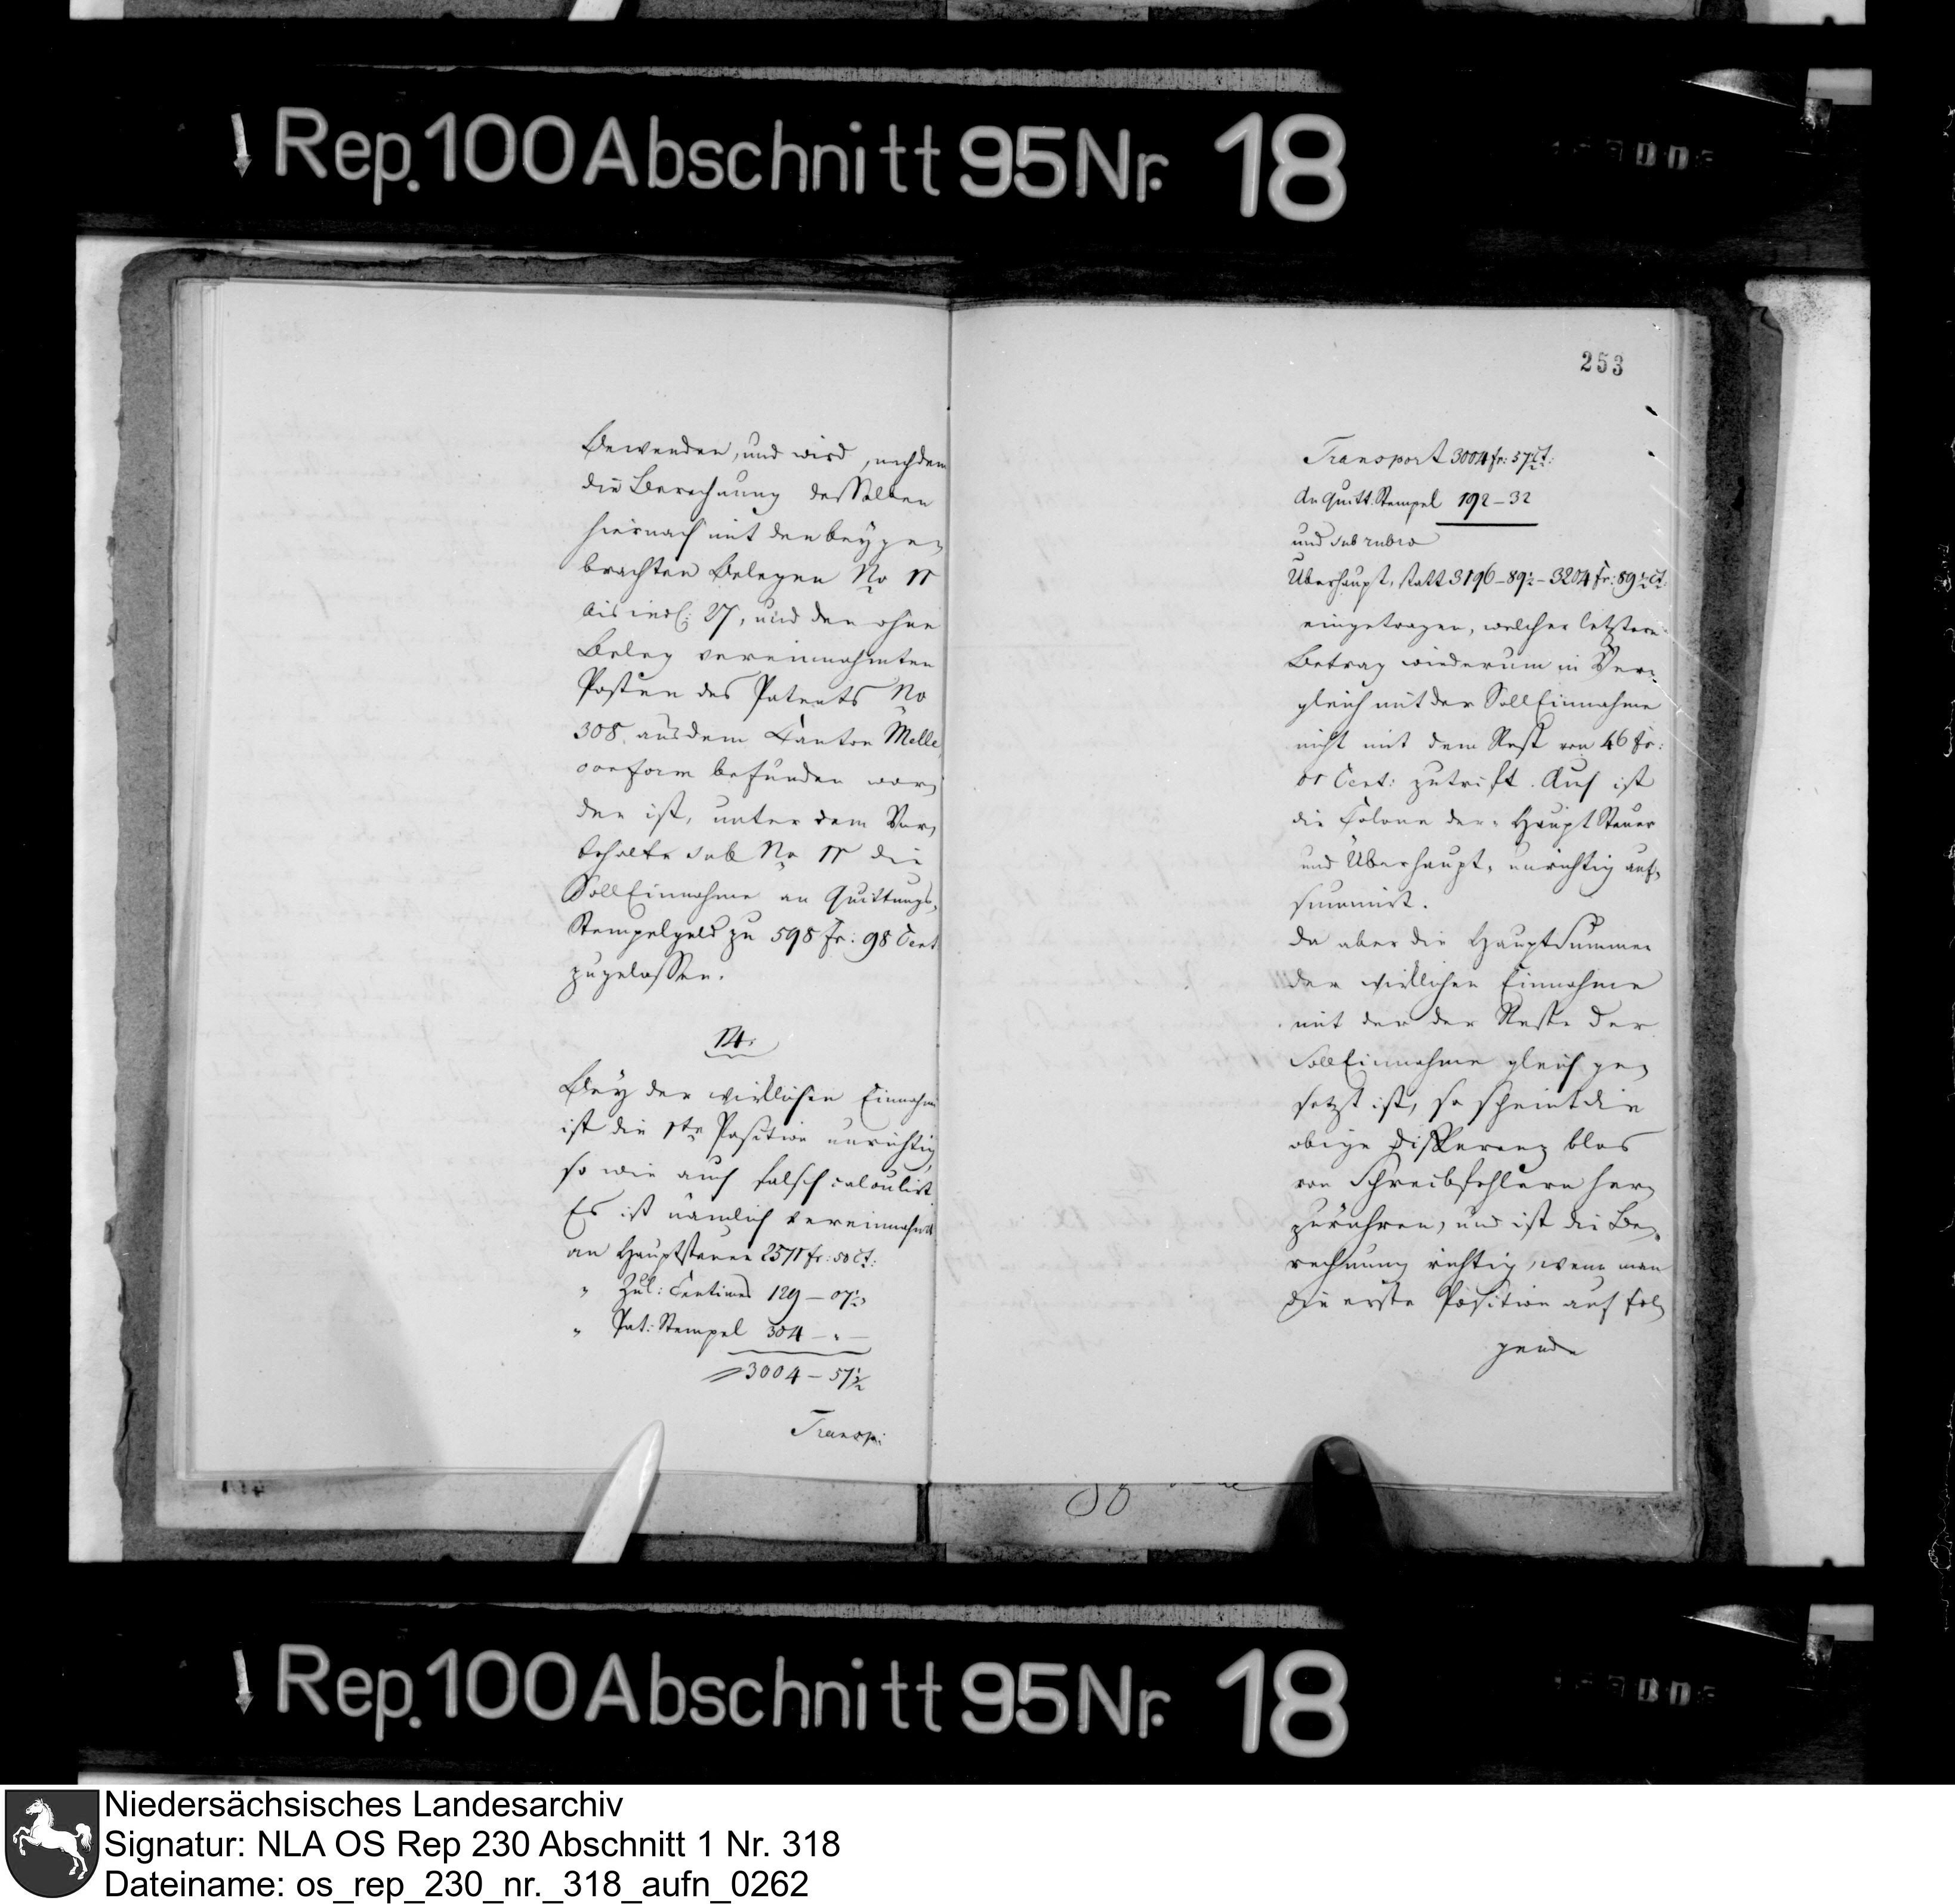 Rep. 100 Abschnitt 95 Nr. 18
Bewenden, und wird, nachdem
die Berechnung desselben
hiernach mit den beyge-
brachten Belegen No 11
bis incl: 27, und den ohne
Beleg vereinnahmten
Posten des Patents No
308. aus dem Canton Melle,
conform befunden wor-
den ist, unter dem Vor-
behalte sub No 11 die
Soll Einnahme an Quittungs-
Stempelgeld zu 598 fr: 98 Cent
zugelassen.
14.
Bey der wirklichen Einnahme
ist die 1te Position unrichtig,
so wie auch falsch calculirt
Es ist nämlich vereinnahmt
an Hauptsteuer 2571 fr: 50 Ct:
" Zul: Centimes 129 – 07½
" Pat: Stempel 304 – " –
3004 – 57½
Transp:
253
Transport 3004 fr: 57½ Ct:
An Quitt. Stempel 192 – 32
und sub rubro
Überhaupt, statt 3196 – 89½ – 3204 fr: 89½ Ct:
eingetragen, welcher letztere
Betrag wiederum in Ver-
gleich mit der Soll Einnahme
nicht mit dem Rest von 46 fr:
Cent: zutrift. Auch ist
die Colonne der " Haupt Steuer
und Überhaupt " unrichtig auf-
summirt.
Da aber die Hauptsummen
der wirklichen Einnahme
mit der der Reste der
Soll Einnahme gleich ge-
setzt ist, so scheint die
obige Differenz blos
von Schreibfehlern her-
zurühren, und ist die Be-
rechnung richtig, wenn man
die erste Position auf fol-
gende
Rep. 100 Abschnitt 95 Nr. 18
Niedersächsisches Landesarchiv
Signatur: NLA OS Rep 230 Abschnitt 1 Nr. 318
Dateiname: os_rep_230_nr._318_aufn_0262